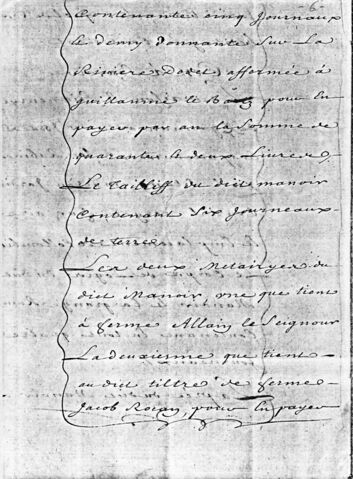 Contenante cinq Journaux
le demy donnante sur La
Riviere Doret, affermée à
guillaume le pour En
payer par an la Somme de
quarante & deux Livres
Le Tailliff du dict manoir
Contenant Six Journeaux
de terre
Les deux Metairyes du
dict Manoir, une que tient
à ferme Allain le Seignour
La deuxieme que tient
au dict tiltre de ferme
Jacob pour En payer